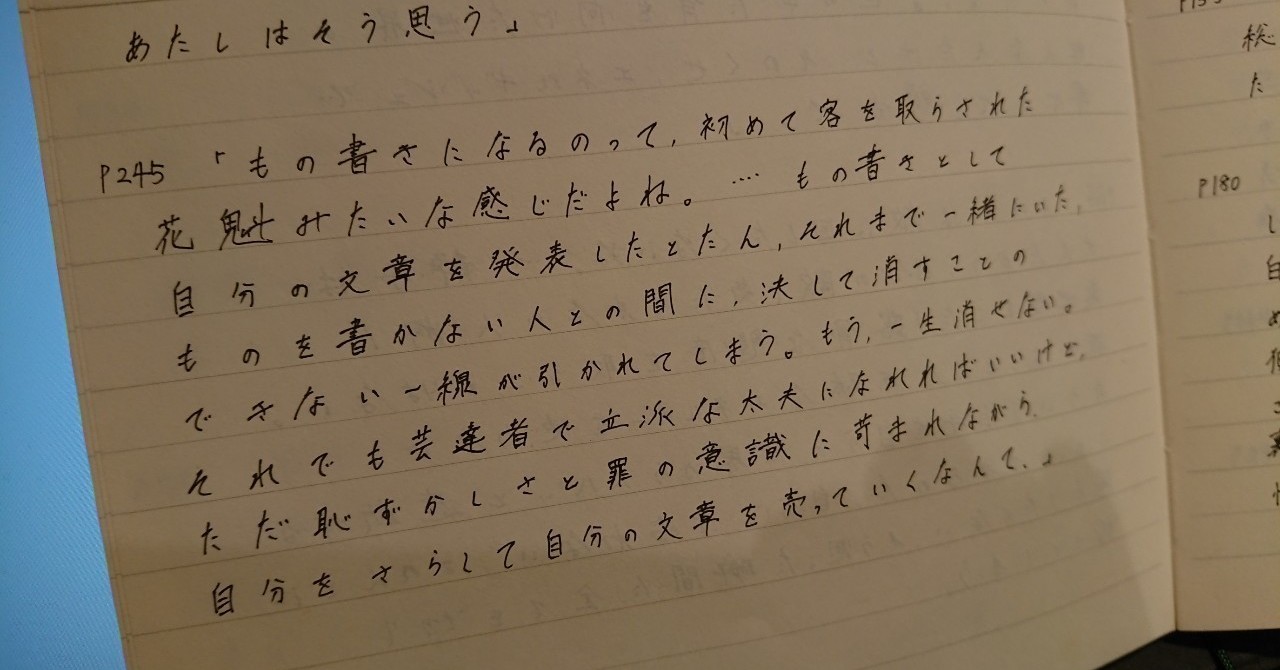 あたしはそう思う」
P245 「もの書きになるのって、初めて客を取らされた
花魁みたいな感じだよね。… もの書きとして
自分の文章を発表したとたん、それまで一緒にいた、
ものを書かない人との間に、決して消すことの
できない一線が引かれてしまう。もう、一生消せない。
それでも芸達者で立派な太夫になれればいいけど、
ただ恥ずかしさと罪の意識に苛まれながら、
自分をさらして自分の文章を売っていくなんて、」
総
た
P180
し
自